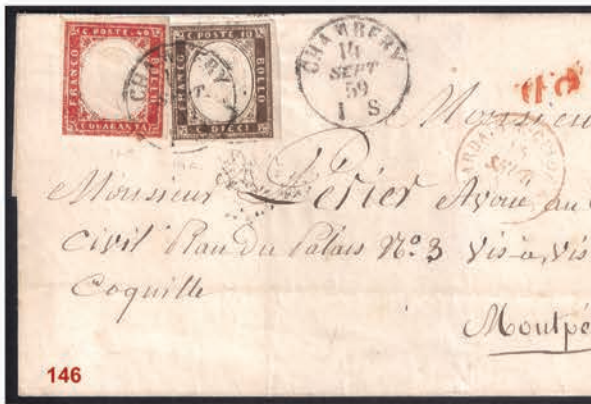 C. POSTE. 40
FRANCO
BOLLO
C. QUARANTA
C. POSTE. 10
FRANCO
BOLLO
C. DIECI
CHAMBERY
CHAMBERY
14
SEPT
59
1 S
P.D.
Monsieur
Monsieur Perier Avoué au
Civil Plan du Palais No. 3 Vis-à-Vis
Coquille
Montpé
146